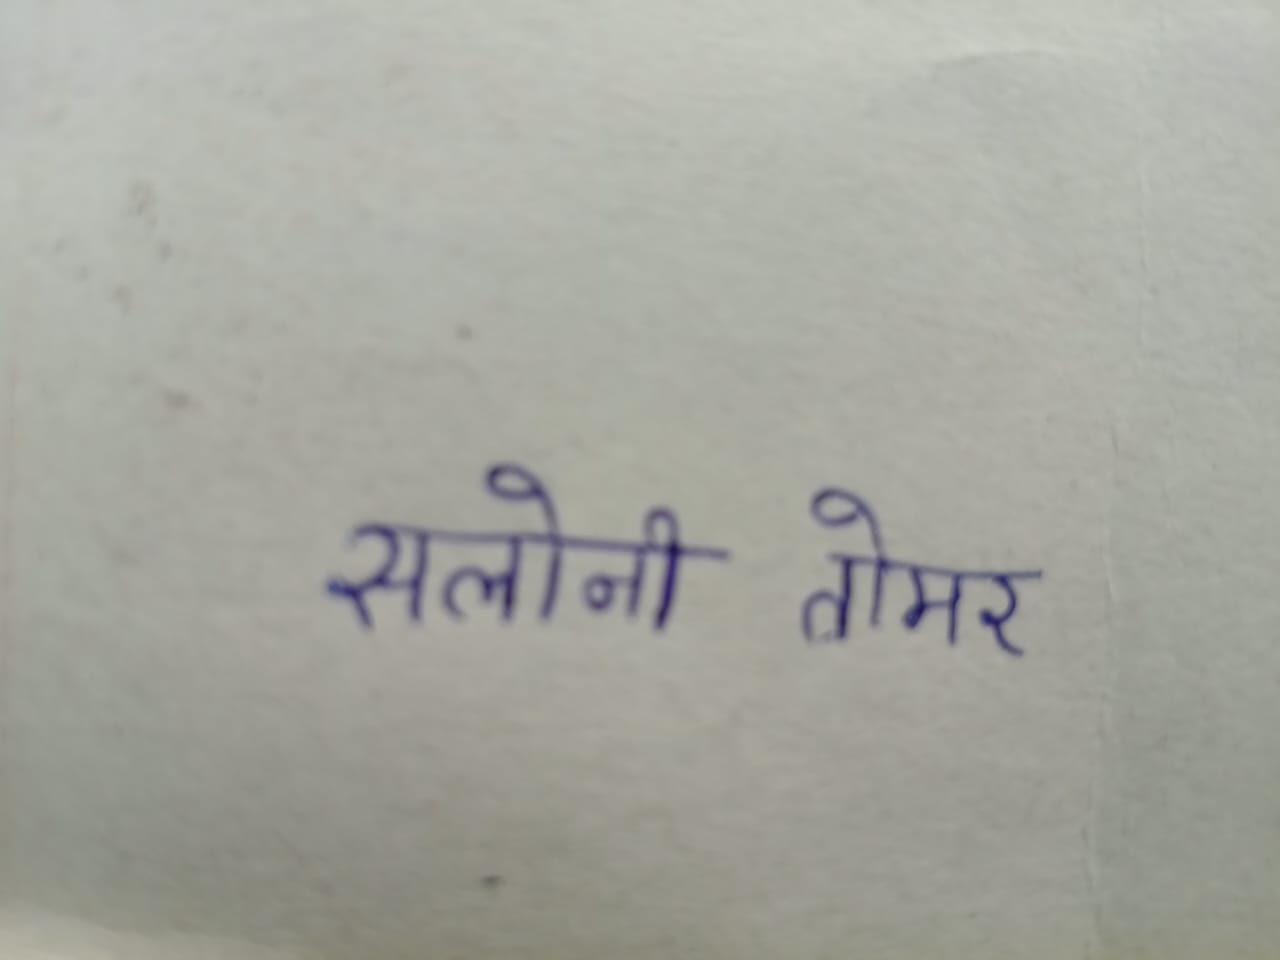 सलोनी तोमर